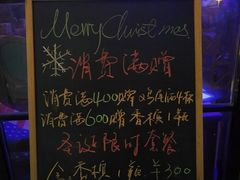 Merry Christmas
消费满赠
消费满400赠鸡尾酒4杯
消费满600赠香槟1瓶
圣诞限时套餐
香槟1瓶 ¥300